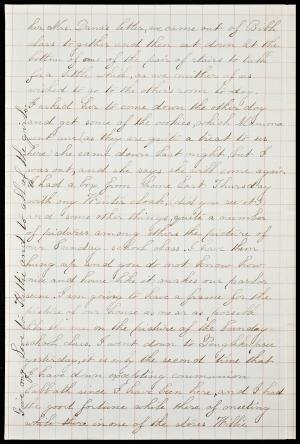 her Mrs. Dana's letter, we came out of Bible
class together and then sat down at the
bottom of one of the pair of stairs to talk
for a little. And, as we neither of us
wished to go to the others room to day,
I asked her to come down the other day
and get some of the cookies, which Mamma
sent me (as they are quite a treat to us
here) she came down last night but I
was out, and she says she will come again
I had a box from home last Thursday
with my Winter cloak, (did you see it)
and some other things, quite a number
of pictures among others the picture of
our Sunday school class. I have them
hung up and you do not know how
nice and home like it makes our parlor
seem. I am going to have a frame for the
picture of our house as near as possible
like the on the picture of the Sunday
school class. I went down to
yesterday, it is only the second time that
I have down excepting communion
Sabbath since I have been here, and I had
the good fortune while there of meeting
while there in one of the stores Willie
Give my love to Hattie and to all of the girls.